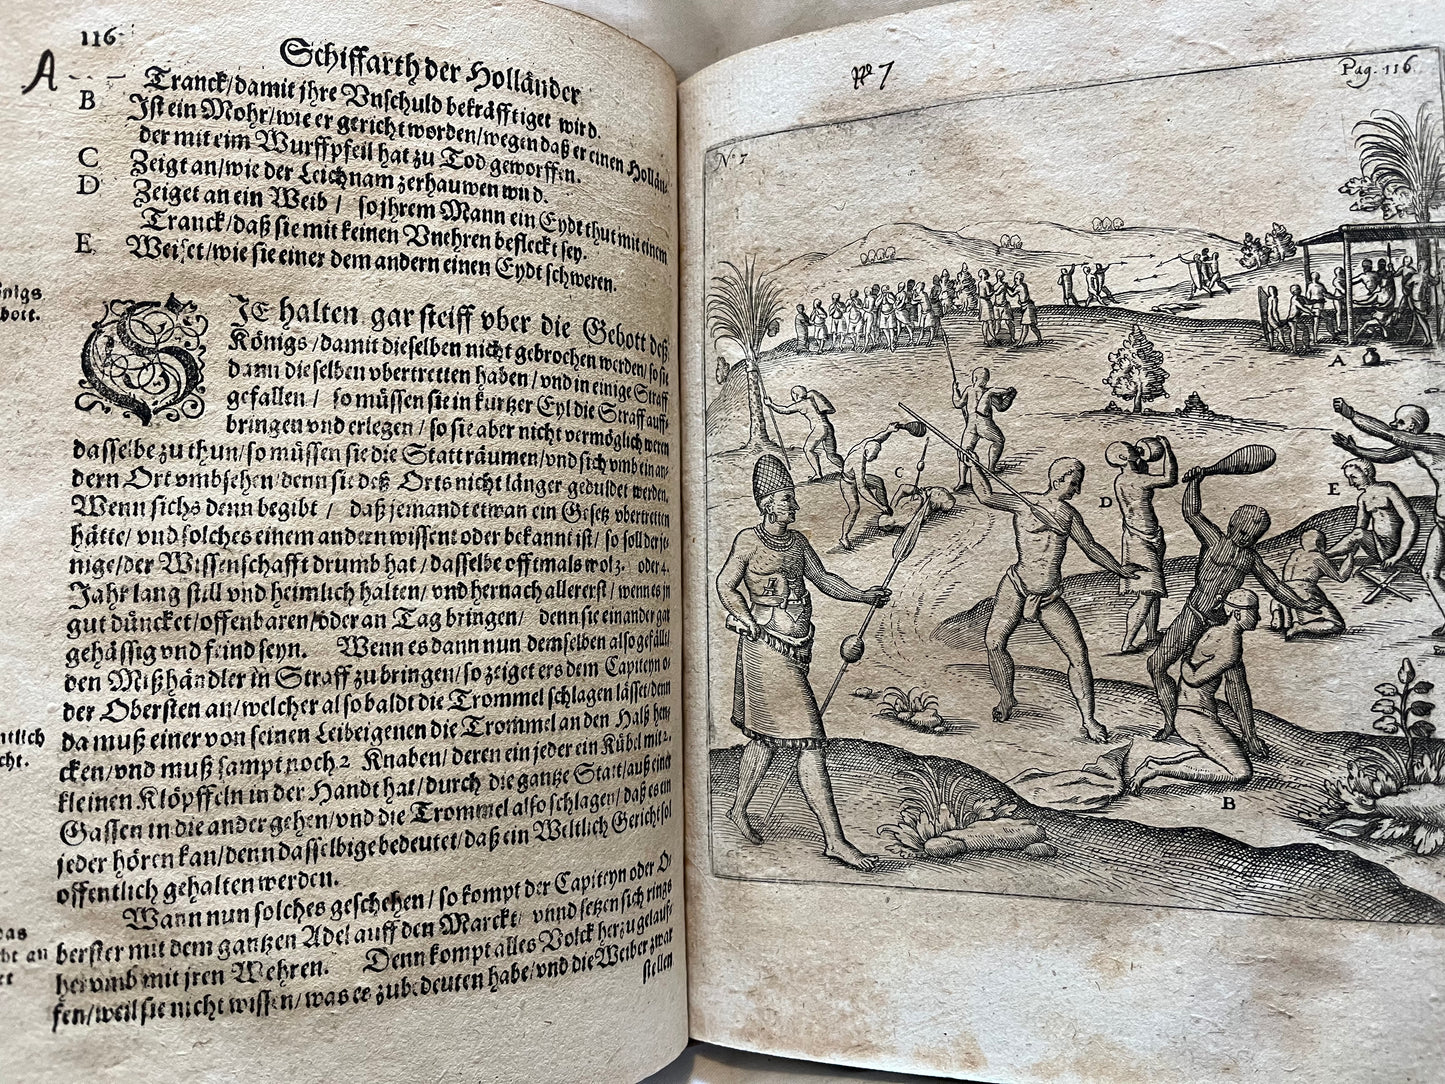 116
Schiffarth der Holländer
A
Tranck/damit jhre Vnschuld bekräfftiget wird.
B Ist ein Mohr/wie er gericht worden/wegen daß er einen Hollän-
der mit eim Wurffpfeil hat zu Tod geworffen.
C Zeigt an/wie der Leichnam zerhauwen wird.
D Zeiget an ein Weib/ so jhrem Mann ein Eydt thut mit einem
Tranck/daß sie mit keinen Vnehren befleckt sey.
E Weiset/wie sie einer dem andern einen Eydt schweren.
SIE halten gar steiff vber die Gebott deß
Königs/damit dieselben nicht gebrochen werden/so sie
dann dieselben vbertretten haben/vnd in einige Straff
gefallen/ so müssen sie in kurtzer Eyl die Straff auff-
bringen vnd erlegen/so sie aber nicht vermöglich weren
dasselbe zu thun/so müssen sie die Statt räumen/vnd sich vmb ein an-
dern Ort vmbsehen/denn sie deß Orts nicht länger geduldet werden.
Wenn sichs denn begibt/ daß jemandt etwan ein Gesetz vbertretten
hätte/ vnd solches einem andern wissent oder bekannt ist/ so soll der je-
nige/der Wissenschafft drumb hat/dasselbe offtmals wol 3. oder 4.
Jahr lang still vnd heimlich halten/vnd hernach allererst/wenn es jn
gut düncket/offenbaren/oder an Tag bringen/ denn sie einander gar
gehässig vnd feind seyn. Wenn es dann nun demselben also gefällt/
den Mißhändler in Straff zu bringen/so zeiget ers dem Capiteyn o-
der Obersten an/welcher alsobaldt die Trommel schlagen lässet/denn
da muß einer von seinen Leibeigenen die Trommel an den Halß hen-
cken/vnd muß sampt noch 2 Knaben/deren ein jeder ein Kübel mit 2.
kleinen Klöpffeln in der Handt hat/durch die gantze Statt/auß einer
Gassen in die ander gehen/vnd die Trommel also schlagen/daß es ein
jeder hören kan/denn dasselbige bedeutet/daß ein Weltlich Gericht sol
offentlich gehalten werden.
Wann nun solches geschehen/so kompt der Capiteyn oder O-
berster mit dem gantzen Adel auff den Marckt/ vnnd setzen sich rings
herumb mit jren Wehren. Denn kompt alles Volck herzu gelauf-
fen/weil sie nicht wissen/was es zubedeuten habe/vnd die Weiber zwar
stellen
No 7
Pag. 116
No 7
A
C
D
E
B